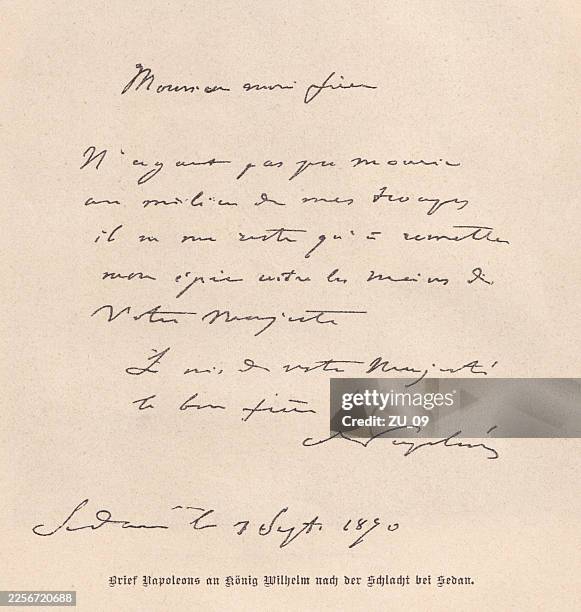 Monsieur mon frère
N'ayant pas pu mourir
au milieu de mes troupes
il ne me reste qu'à remettre
mon épée entre les mains de
Votre Majesté
Je suis de votre Majesté
le bon frère
Napoléon
Sedan le 1 Sept. 1870
Brief Napoleons an König Wilhelm nach der Schlacht bei Sedan.
gettyimages
Credit: ZU_09
2256720688